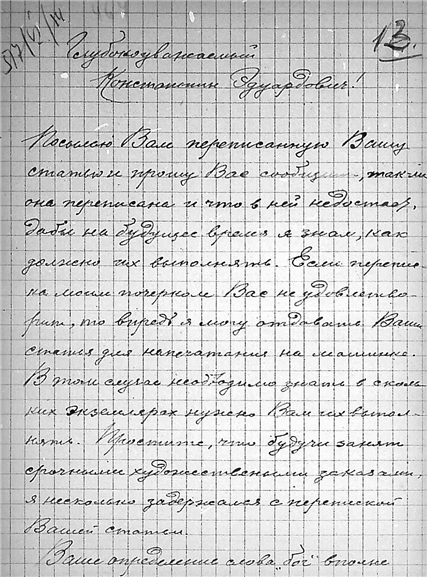 577/VI/14
13.
Глубокоуважаемый
Константин Эдуардович!
Посылаю Вам переписанную Вашу
статью и прошу Вас сообщить, так ли
она переписана и что в ней недостает,
дабы на будущее время я знал, как
должно их выполнять. Если перепис-
ка моим почерком Вас не удовлетво-
рит, то впредь я могу отдавать Ваши
статьи для напечатания на машинке.
В этом случае необходимо знать в сколь-
ких экземлярах нужно Вам их выпол-
нять. Простите, что будучи занят
срочными художественными заказами,
я несколько задержался с перепиской
Вашей статьи.
Ваше определение слова „бог" вполне